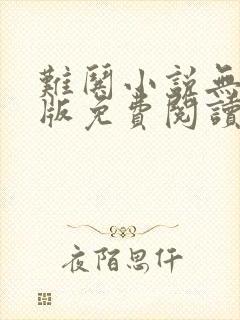 難鬧小説無
版免費閱讀
夜陌思仟